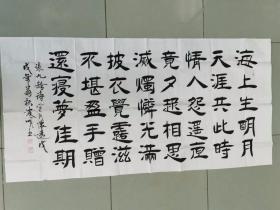 海上生明月
天涯共此時
情人怨遥夜
竟夕起相思
滅燭憐光滿
披衣覺露滋
不堪盈手贈
還寝夢佳期
張九齡詩望月懷遠戊
戌年